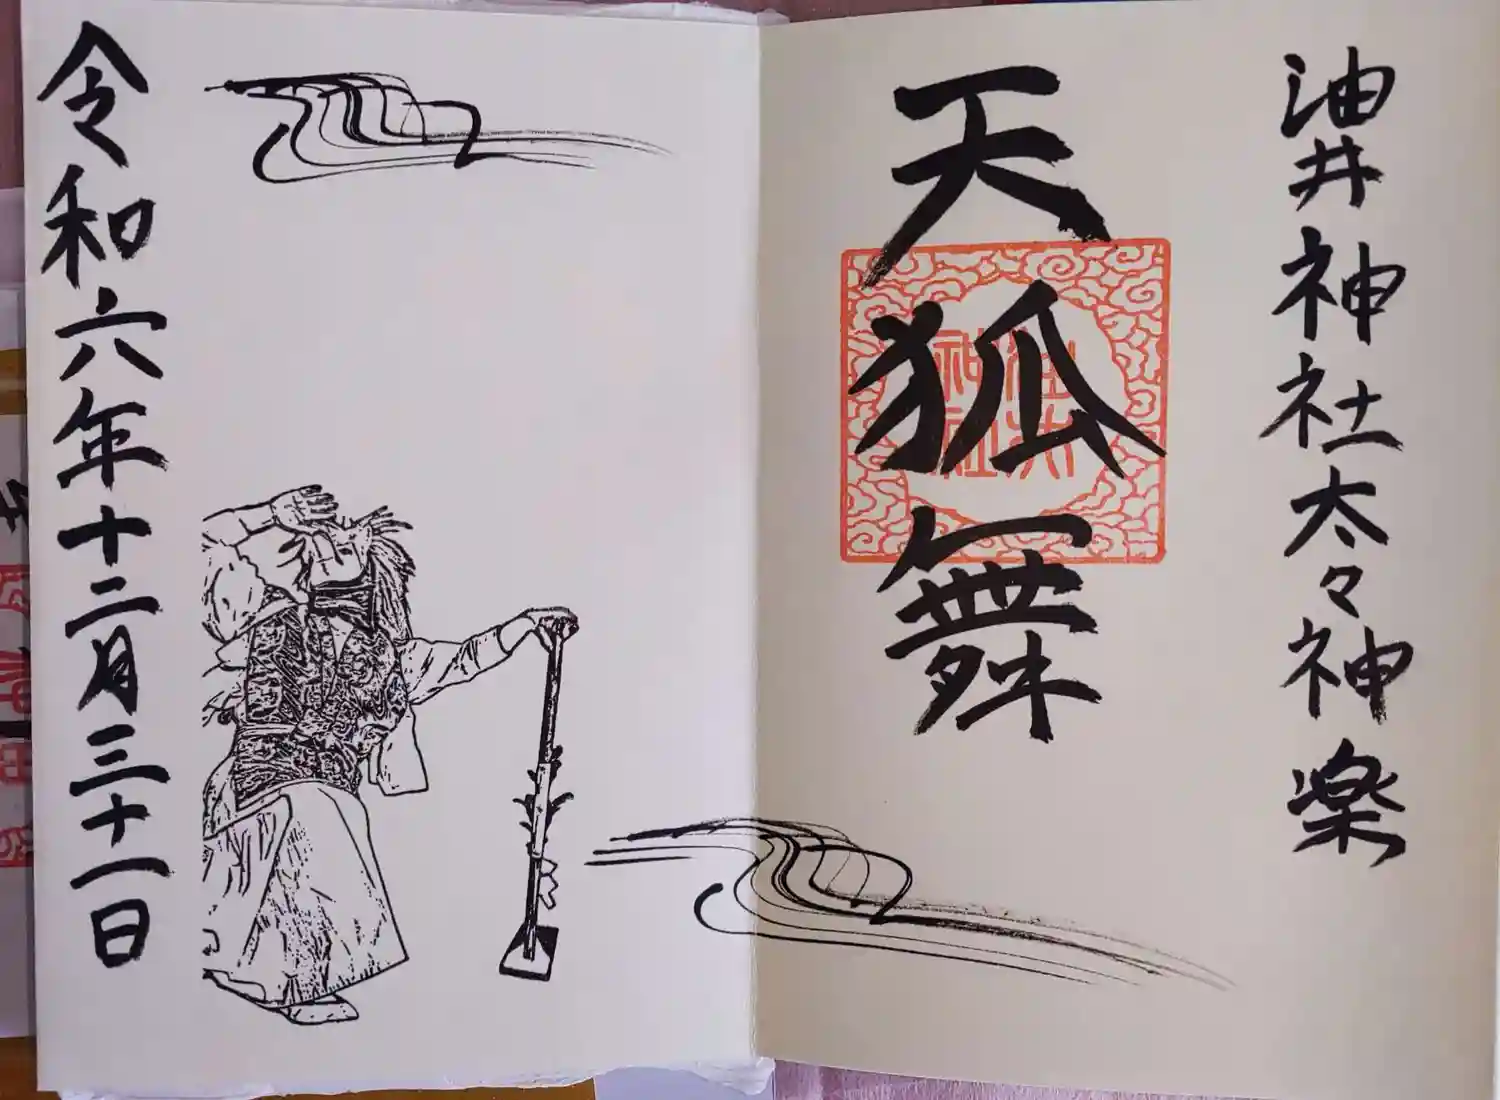 油井神社太々神楽
天狐舞
油井
神社
令和六年十二月三十一日